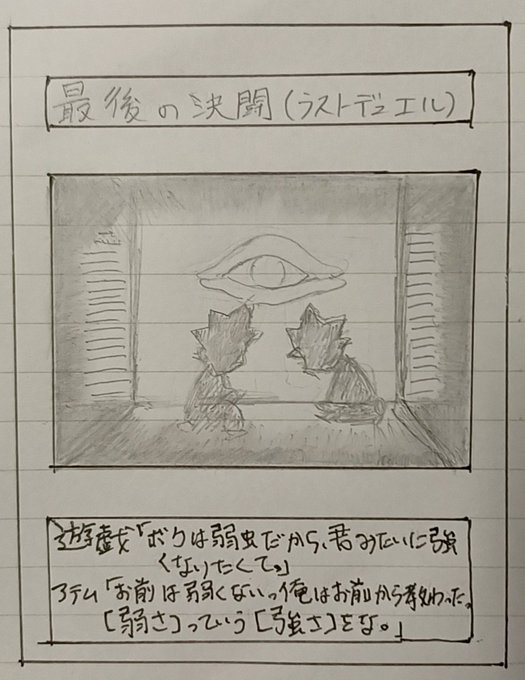 最後の決闘(ラストデュエル)
遊戯「ボクは弱虫だから、君みたいに強
くなりたくて。」
アテム「お前は弱くないっ俺はお前から教わった。
[弱さ]っていう[強さ]をな。」